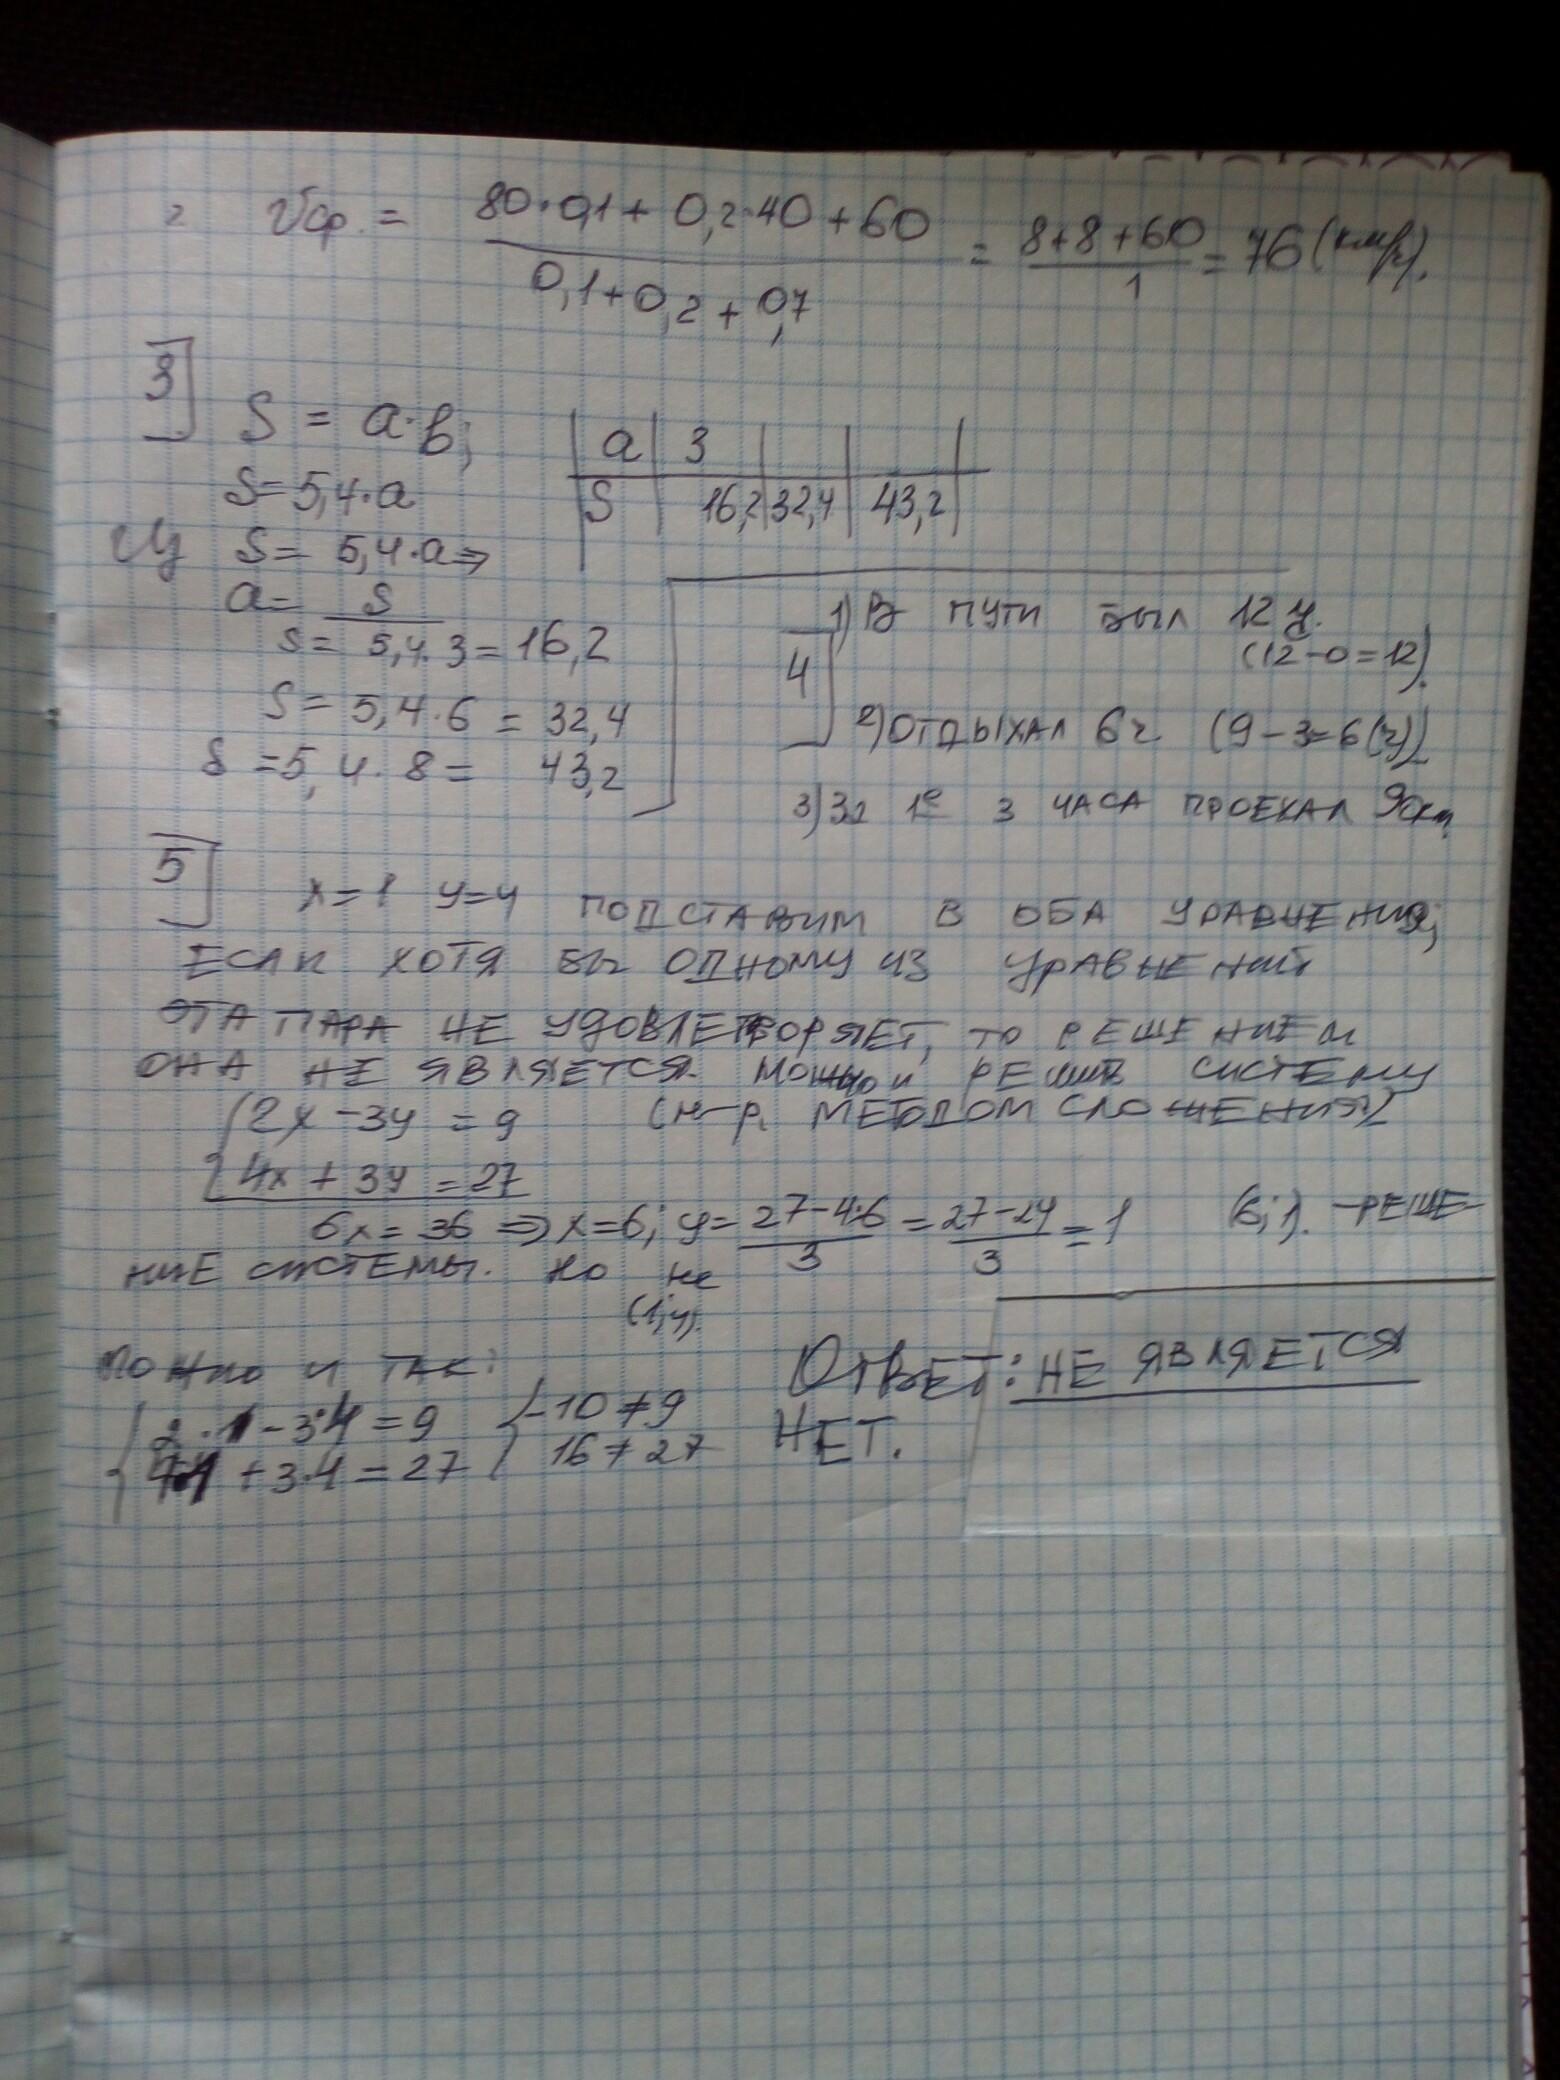 2 Vср. = 80·0,1 + 0,2·40 + 60 / 0,1 + 0,2 + 0,7 = 8+8+60 / 1 = 76 (км/ч).
3
S = a·b;
S = 5,4·a
S = 5,4·a ⇒
a = S
S = 5,4·3 = 16,2
S = 5,4·6 = 32,4
S = 5,4·8 = 43,2
a 3
S 16,2 32,4 43,2
4
1) В ПУТИ БЫЛ 12 ч.
(12-0=12).
2) ОТДЫХАЛ 6 ч (9-3=6(ч))
3) За 1е 3 ЧАСА ПРОЕХАЛ 90км
5
x=1 y=4 ПОДСТАВИМ В ОБА УРАВНЕНИЯ;
ЕСЛИ ХОТЯ БЫ ОДНОМУ ИЗ УРАВНЕНИЙ
ЭТА ПАРА НЕ УДОВЛЕТВОРЯЕТ, ТО РЕШЕНИЕМ
ОНА НЕ ЯВЛЯЕТСЯ. МОЖНО и РЕШИТЬ СИСТЕМУ
{2x - 3y = 9 (н-р, МЕТОДОМ СЛОЖЕНИЯ)
4x + 3y = 27
6x = 36 ⇒ x=6; y = 27-4·6 / 3 = 27-24 / 3 = 1 (6;1). -РЕШЕ-
НИЕ СИСТЕМЫ. НО не
(1;4).
МОЖНО И ТАК:
{2·1 - 3·4 = 9 {-10 ≠ 9
4·1 + 3·4 = 27 16 ≠ 27
ОТВЕТ: НЕ ЯВЛЯЕТСЯ
НЕТ.